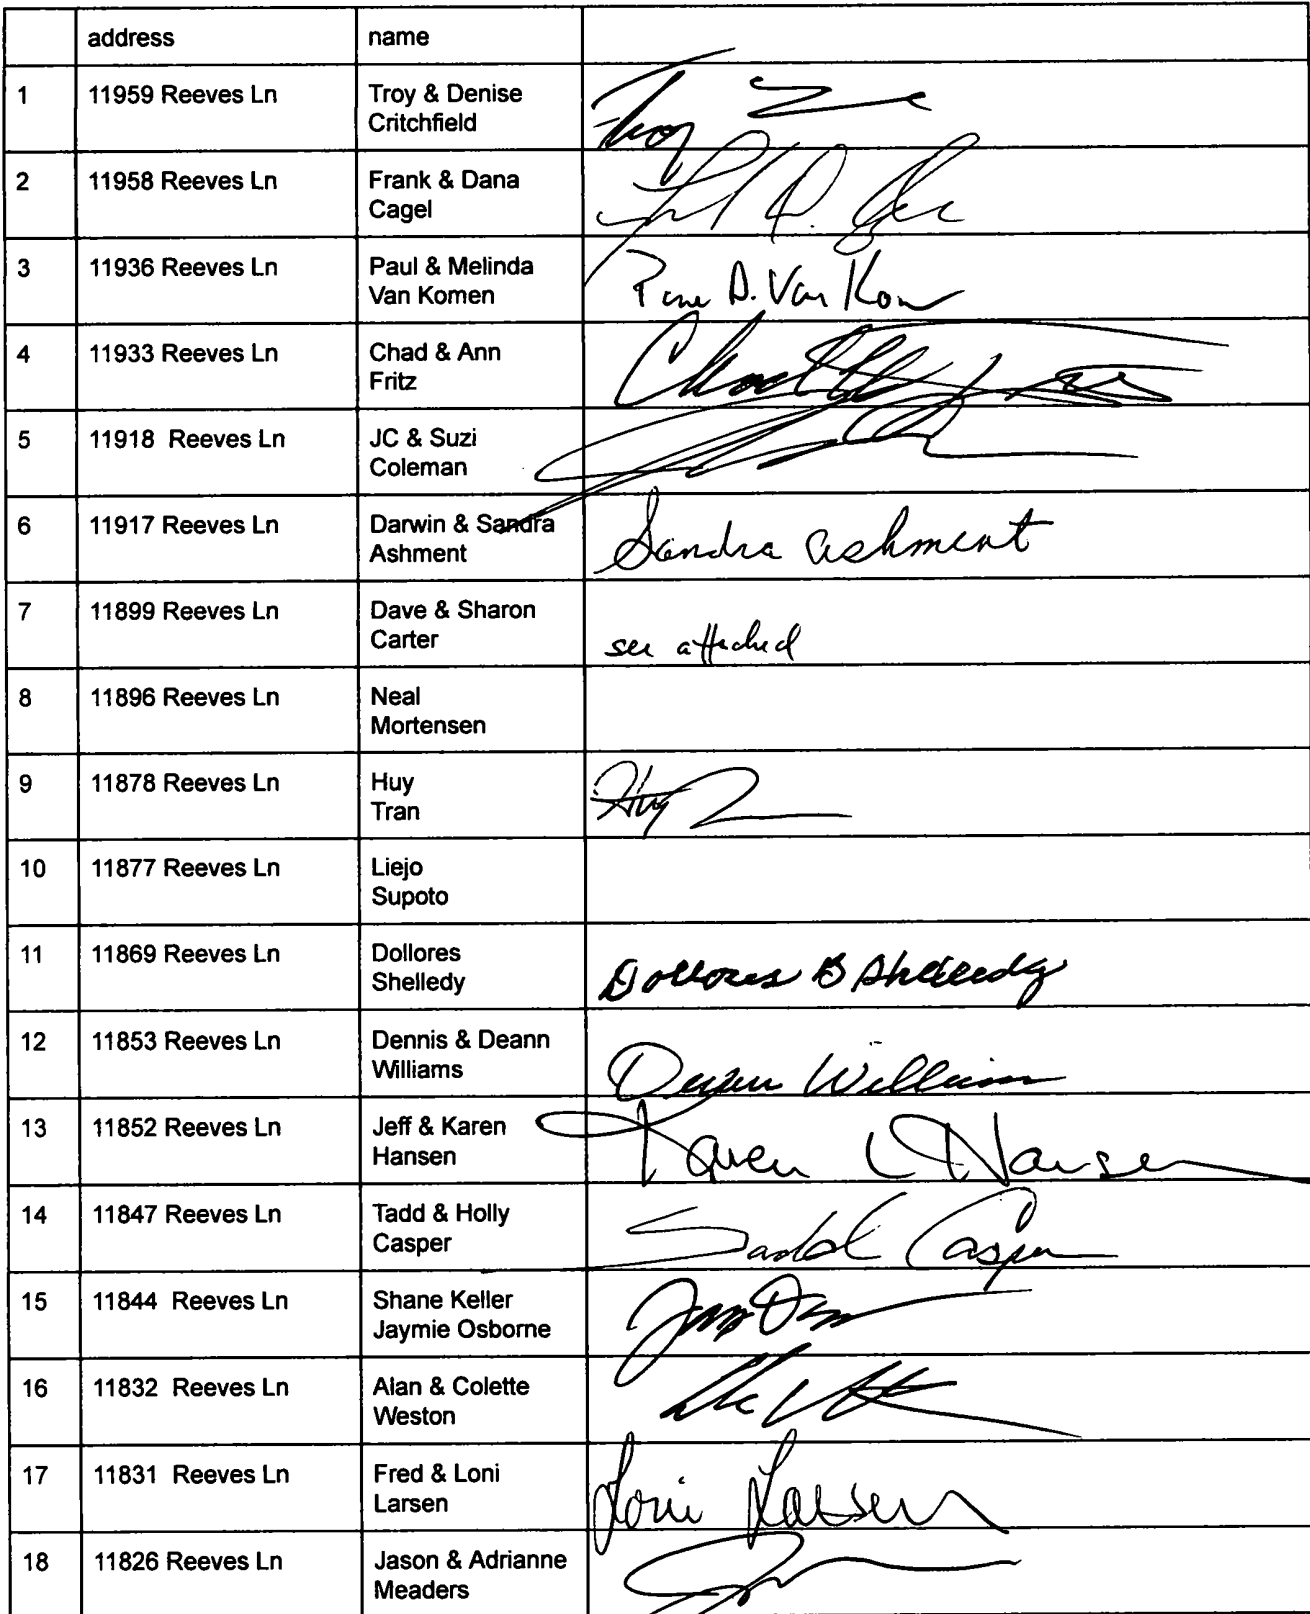 address name
1 11959 Reeves Ln Troy & Denise
Critchfield Troy
2 11958 Reeves Ln Frank & Dana
Cagel
3 11936 Reeves Ln Paul & Melinda
Van Komen D. Van Kom
4 11933 Reeves Ln Chad & Ann
Fritz
5 11918 Reeves Ln JC & Suzi
Coleman
6 11917 Reeves Ln Darwin & Sandra
Ashment Sandra Ashment
7 11899 Reeves Ln Dave & Sharon
Carter see attached
8 11896 Reeves Ln Neal
Mortensen
9 11878 Reeves Ln Huy
Tran Huy
10 11877 Reeves Ln Liejo
Supoto
11 11869 Reeves Ln Dollores
Shelledy Dollores B Shelledy
12 11853 Reeves Ln Dennis & Deann
Williams Williams
13 11852 Reeves Ln Jeff & Karen
Hansen Karen Hansen
14 11847 Reeves Ln Tadd & Holly
Casper Casper
15 11844 Reeves Ln Shane Keller
Jaymie Osborne
16 11832 Reeves Ln Alan & Colette
Weston
17 11831 Reeves Ln Fred & Loni
Larsen Loni Larsen
18 11826 Reeves Ln Jason & Adrianne
Meaders